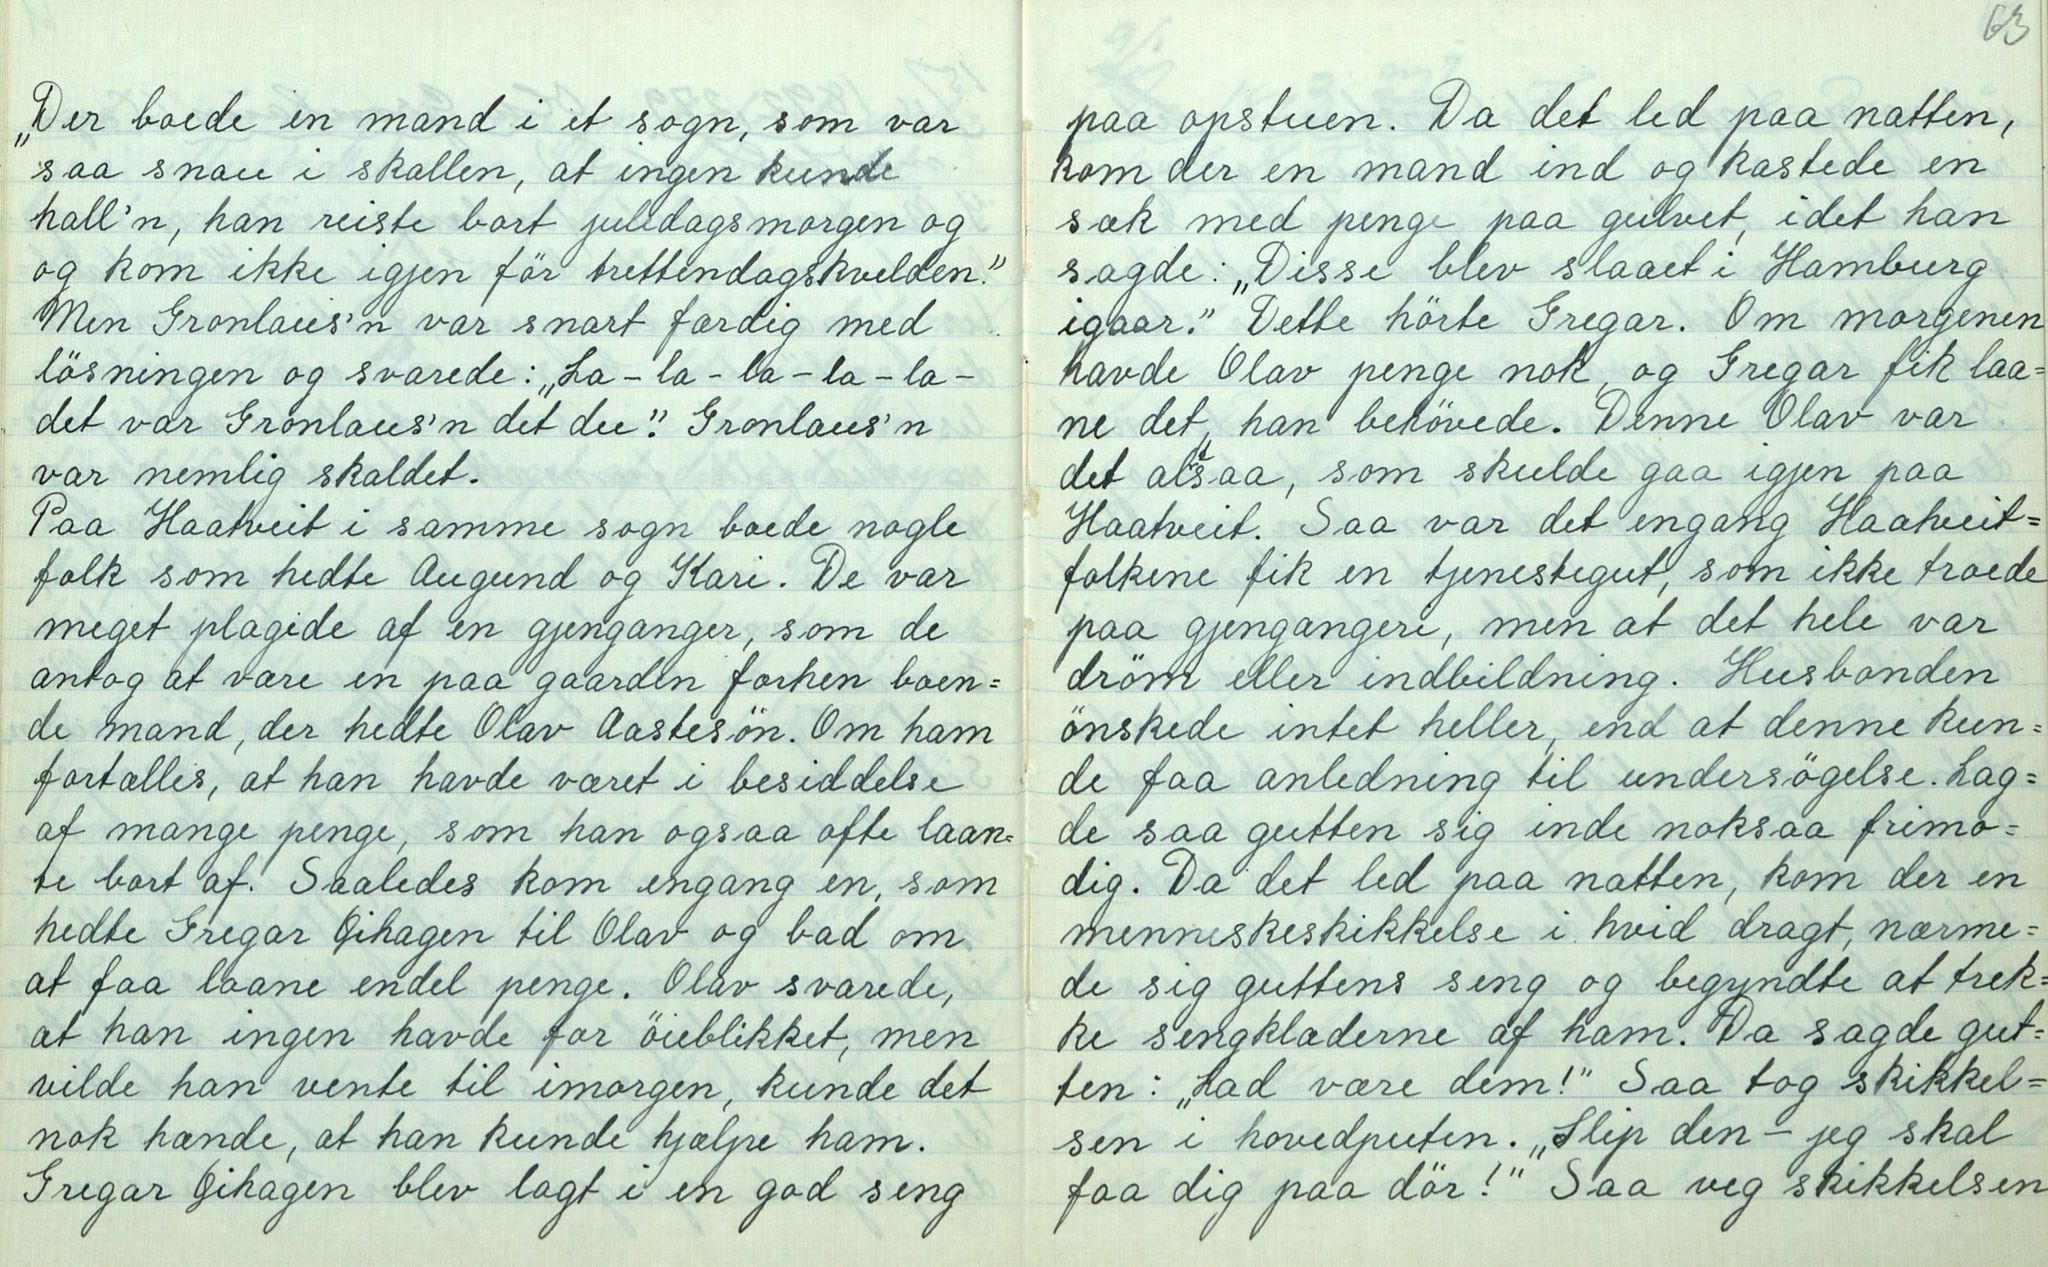 „Der boede en mand i et sogn, som var
saa snau i skallen, at ingen kunde
hall'n, han reiste bort juldagsmorgen og
og kom ikke igjen för trettendagskvelden."
Men Gronlaus'n var snart færdig med
lösningen og svarede: „La-la-la-la-la-
det var Gronlaus'n det du". Gronlaus'n
var nemlig skaldet.
Paa Haatveit i samme sogn boede nogle
folk som hedte Augund og Kari. De var
meget plagede af en gjenganger, som de
antog at være en paa gaarden forhen boen=
de mand, der hedte Olav Aastesön. Om ham
fortælles, at han havde været i besiddelse
af mange penge, som han ogsaa ofte laan=
te bort af. Saaledes kom engang en, som
hedte Gregar Gihagen til Olav og bad om
at faa laane endel penge. Olav svarede,
at han ingen havde for öieblikket, men
vilde han vente til imorgen, kunde det
nok hænde, at han kunde hjælpe ham.
Gregar Gihagen blev lagt i en god seng
63
paa opstuen. Da det led paa natten,
kom der en mand ind og kastede en
sæk med penge paa gulvet, idet han
sagde: „Disse blev slaaet i Hamburg
igaar." Dette hörte Gregar. Om morgenen
havde Olav penge nok, og Gregar fik laa=
ne det, han behövede. Denne Olav var
det altsaa, som skulde gaa igjen paa
Haatveit. Saa var det engang Haatveit=
folkene fik en tjenestegut, som ikke troede
paa gjengangere, men at det hele var
dröm eller indbildning. Husbonden
önskede intet heller, end at denne kun=
de faa anledning til undersögelse. Lag=
de saa gutten sig inde noksaa frimo=
dig. Da det led paa natten, kom der en
menneskeskikkelse i hvid dragt, nærme=
de sig guttens seng og begyndte at trek=
ke sengklæderne af ham. Da sagde gut=
ten: „Lad være dem!" Saa tog skikkel=
sen i hovedputen. „Slip den - jeg skal
faa dig paa dör!" Saa veg skikkelsen